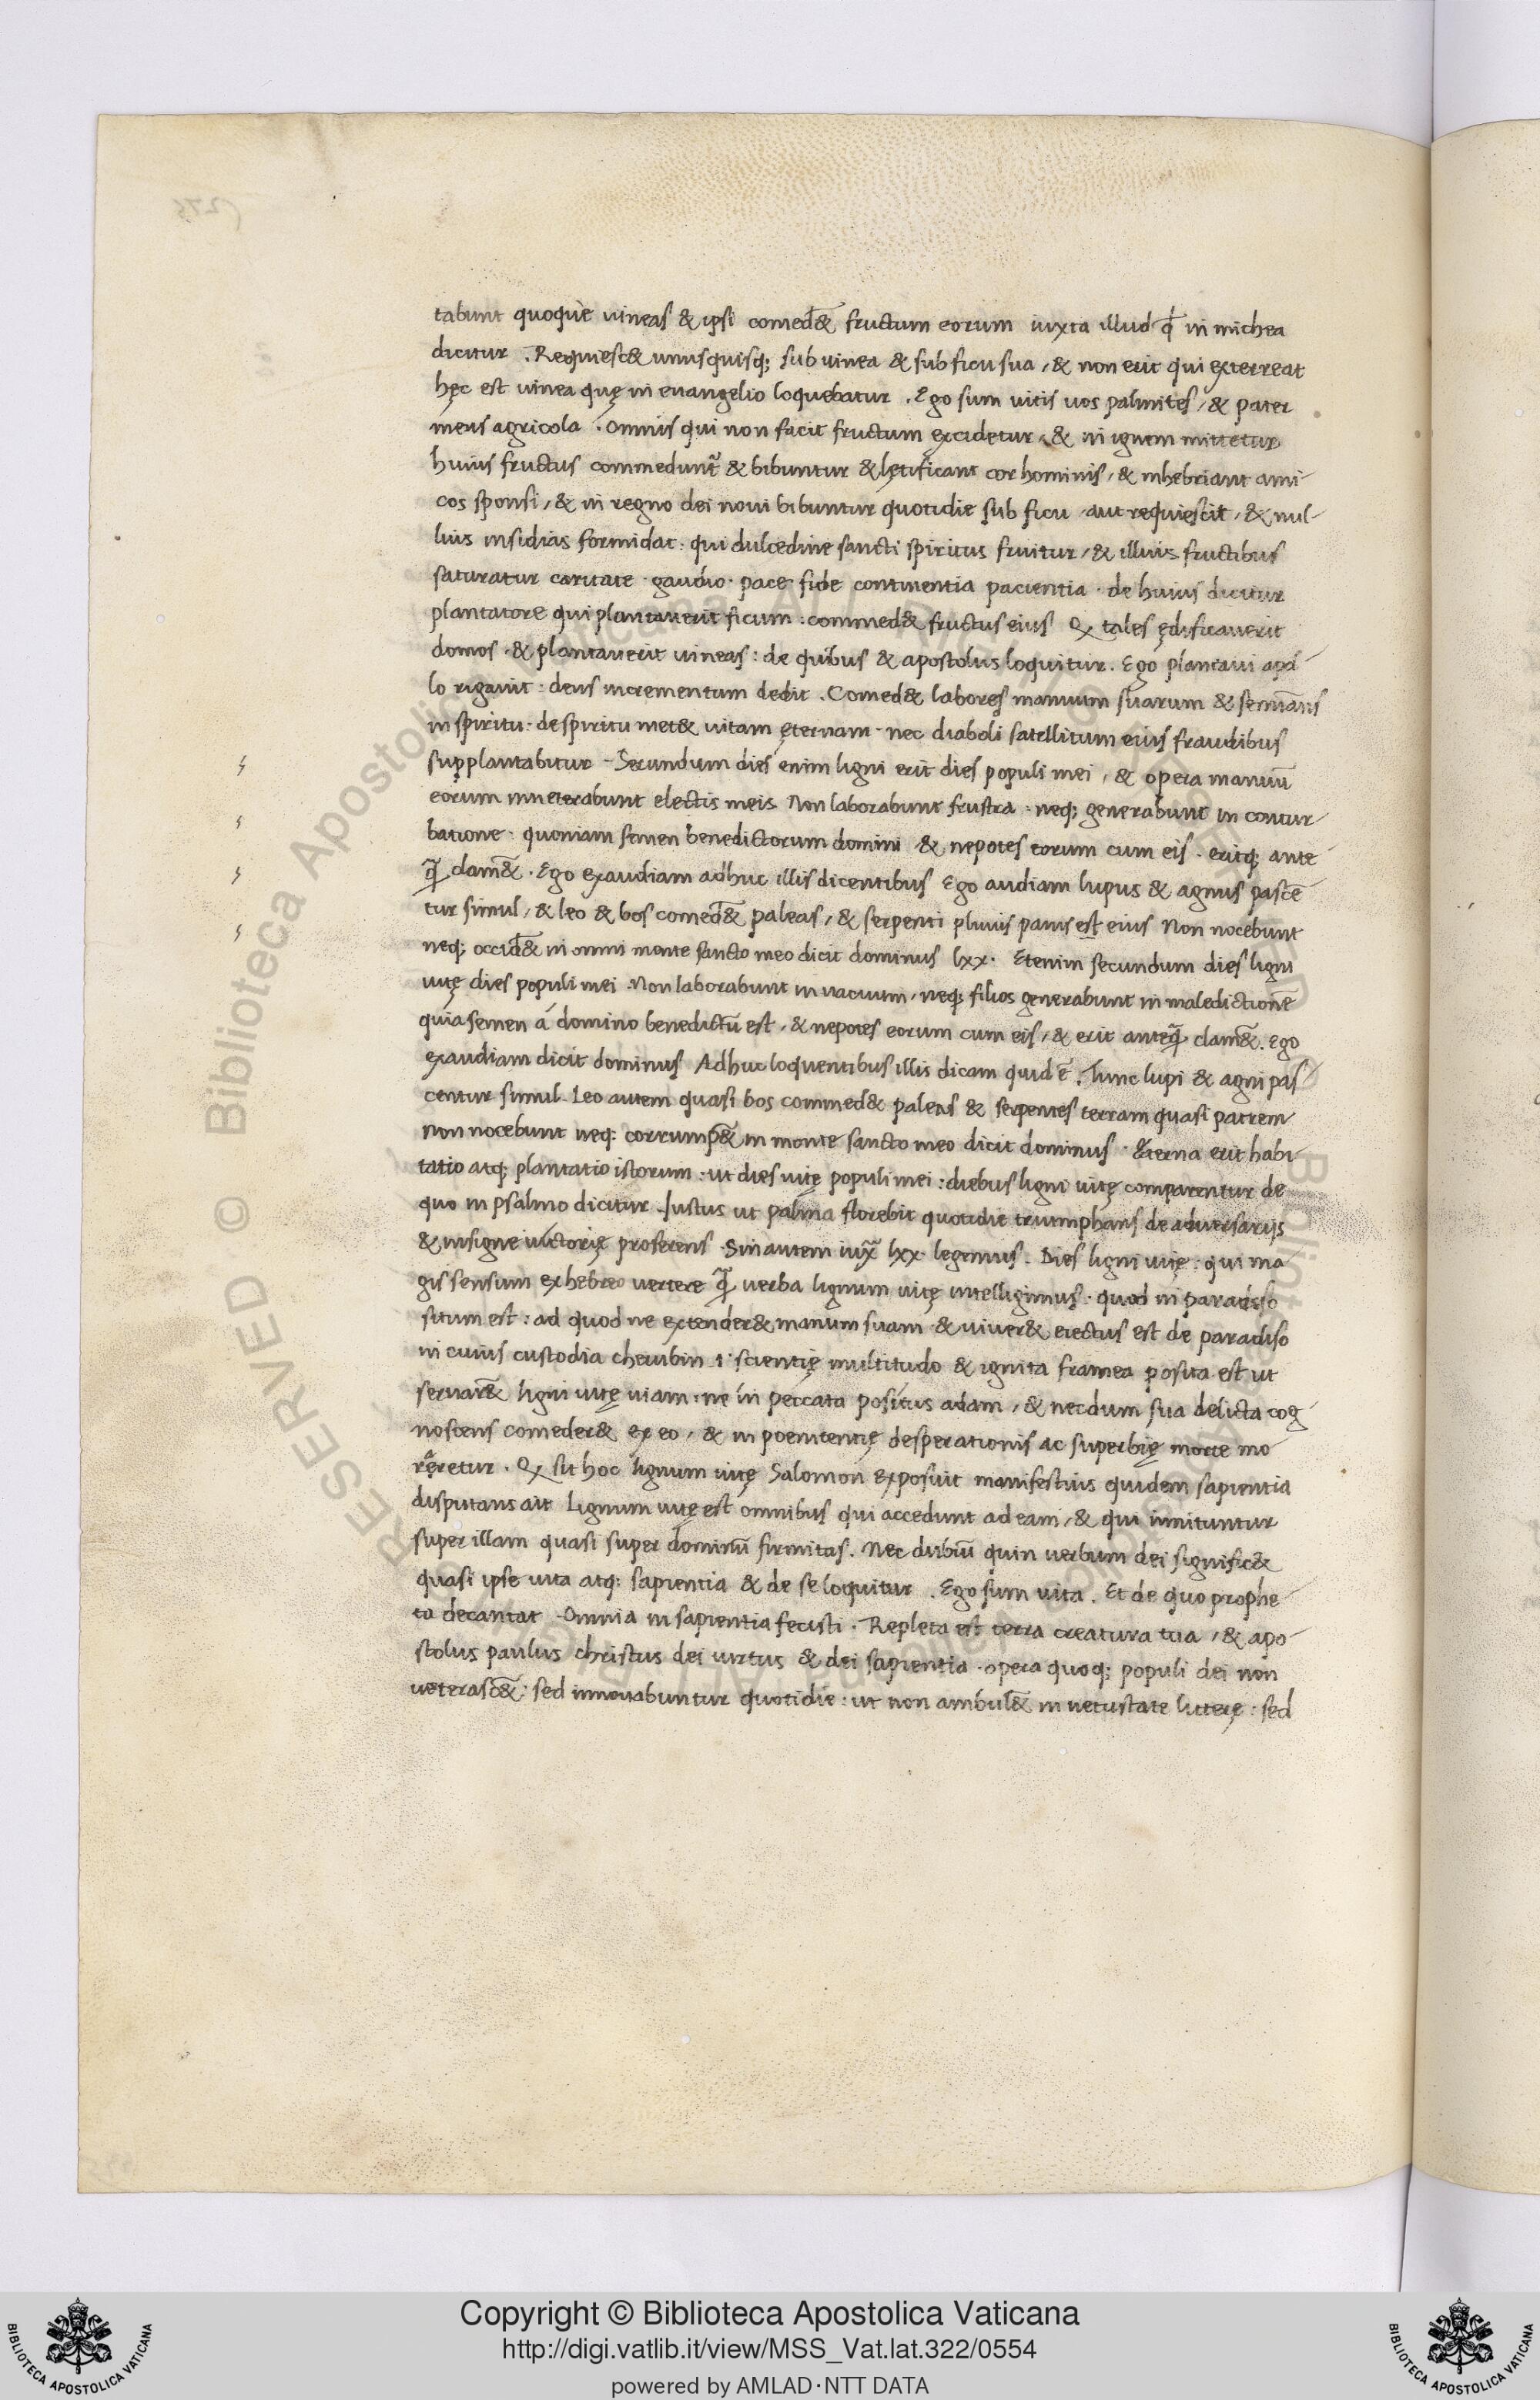 tabunt quoque vineas & ipsi comed&̄ fructum eorum iuxta illud qđ in michea
dicitur . Requiesc& unusquisq; sub vinea & sub ficu sua, & non erit qui exterreat
hęc est vinea quę in evangelio loquebatur . Ego sum vitis vos palmites, & pater
meus agricola . Omnis qui non facit fructum excidetur, & in ignem mittetur
huius fructus commedunt̃ & bibuntur & lętificant cor hominis, & inhebriant ami
cos sponsi, & in regno dei novi bibuntur quotidie sub ficu aut requiescit, & nul-
lius insidias formidat : qui dulcedine sancti spiritus fruitur, & illius fructibus
saturatur caritate · gaudio · pace · fide continentia pacientia · de huius dicitur
plantatore qui plantaverit ficum : commed& fructus eius Q tales ędificaverit
domos · & plantaverit vineas : de quibus & apostolus loquitur . Ego plantavi apol-
lo rigavit : deus incrementum dedit . Comed& labores manuum suarum & seminans
in spiritu · de spiritu met& vitam ęternam · nec diaboli satellitum eius fraudibus
supplantabitur - Secundum dies enim ligni erit dies populi mei, & opera manuū
eorum inveterabunt electis meis Non laborabunt frustra · neq; generabunt in contur-
batione : quoniam semen benedictorum domini & nepotes eorum cum eis . eritq; ante
q̃ clam&̄ . Ego exaudiam adhuc illis dicentibus Ego audiam lupus & agnus pascē-
tur simul, & leo & bos comed&̄ paleas, & serpenti pluuis panis est eius Non nocebunt
neq; occid&̄ in omni monte sancto meo dicit dominus lxx · Etenim secundum dies ligni
vitę dies populi mei . Non laborabunt in vacuum, neq; filios generabunt in maledictionē
quia semen á domino benedictū est, & nepotes eorum cum eis, & erit anteq̃ clam&̄ . Ego
exaudiam dicit dominus Adhuc loquentibus illis dicam quid ē . Tunc lupi & agni pas
centur simul. Leo autem quasi bos commed& paleas & serpentes terram quasi patrem
non nocebunt neq: corrump&̄ in monte sancto meo dicit dominus · Æterna erit habi
tatio atq; plantatio istorum : ut dies vitę populi mei : diebus ligni vitę comparentur de
quo in psalmo dicitur . Justus ut palma florebit quotidie triumphans de adversarijs
& insigne victorię proferens · Sin autem iux̃ lxx · legemus . Dies ligni vitę : qui ma
gis sensum ex hebreo vertere q̃ verba lignum vitę intelligimus · quod in paradiso
situm est : ad quod ne extender& manum suam & viver& eiectus est de paradiso
in cuius custodia cherubin .i. scientię multitudo & ignita framea posita est ut
servar&̄ ligni vitę viam : ne in peccata positus adam, & necdum sua delicta cog-
noscens comeder& ex eo, & in poenitentię desperationis ac superbię morte mo
ręretur . Q sit hoc lignum vitę Salomon exposuit manifestius quidem sapientia
disputans ait Lignum vitę est omnibus qui accedunt ad eam, & qui innituntur
super illam quasi super dominū firmitas . Nec dubiū quin verbum dei signific&
quasi ipse vita atq: sapientia & de se loquitur . Ego sum vita . Et de quo prophe-
ta decantat . Omnia in sapientia fecisti . Repleta est terra creatura tua, & apo-
stolus paulus christus dei virtus & dei sapientia . opera quoq; populi dei non
veterasc&̄ : sed innovabuntur quotidie : ut non ambul&̄ in vetustate litterę : sed
RESERVED © Biblioteca Apostolica Vaticana
Copyright © Biblioteca Apostolica Vaticana
http://digi.vatlib.it/view/MSS_Vat.lat.322/0554
powered by AMLAD·NTT DATA
BIBLIOTECA APOSTOLICA VATICANA
BIBLIOTECA APOSTOLICA VATICANA